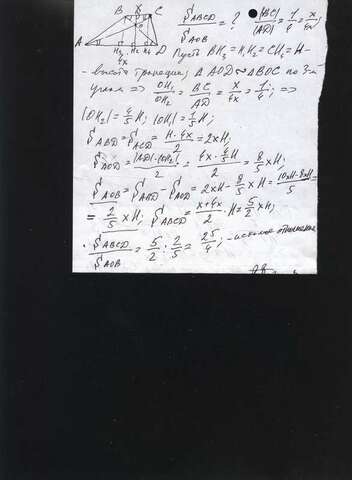 B X C
A H₃ H₂ H₁ D
4x
S_ABCD / S_AOB = ? |BC| / |AD| = 1/4 = x/4x;
Пусть BH₃ = H₁H₂ = CH₁ = H -
- высота трапеции; Δ AOD ∾ ΔBOC по 3-м
углам => OH₁/OH₂ = BC/AD = x/4x = 1/4; =>
|OH₂| = 4/5 H; |OH₁| = 1/5 H;
S_ABD = S_ACD = H·4x/2 = 2xH;
S_AOD = |AD|·|OH₂|/2 = 4x·4/5H/2 = 8/5 xH;
S_AOB = S_ABD - S_AOD = 2xH - 8/5 xH = 10xH-8xH/5 =
= 2/5 xH; S_ABCD = x+4x/2 · H = 5/2 xH;
S_ABCD / S_AOB = 5/2 : 2/5 = 25/4; - искомое отношение